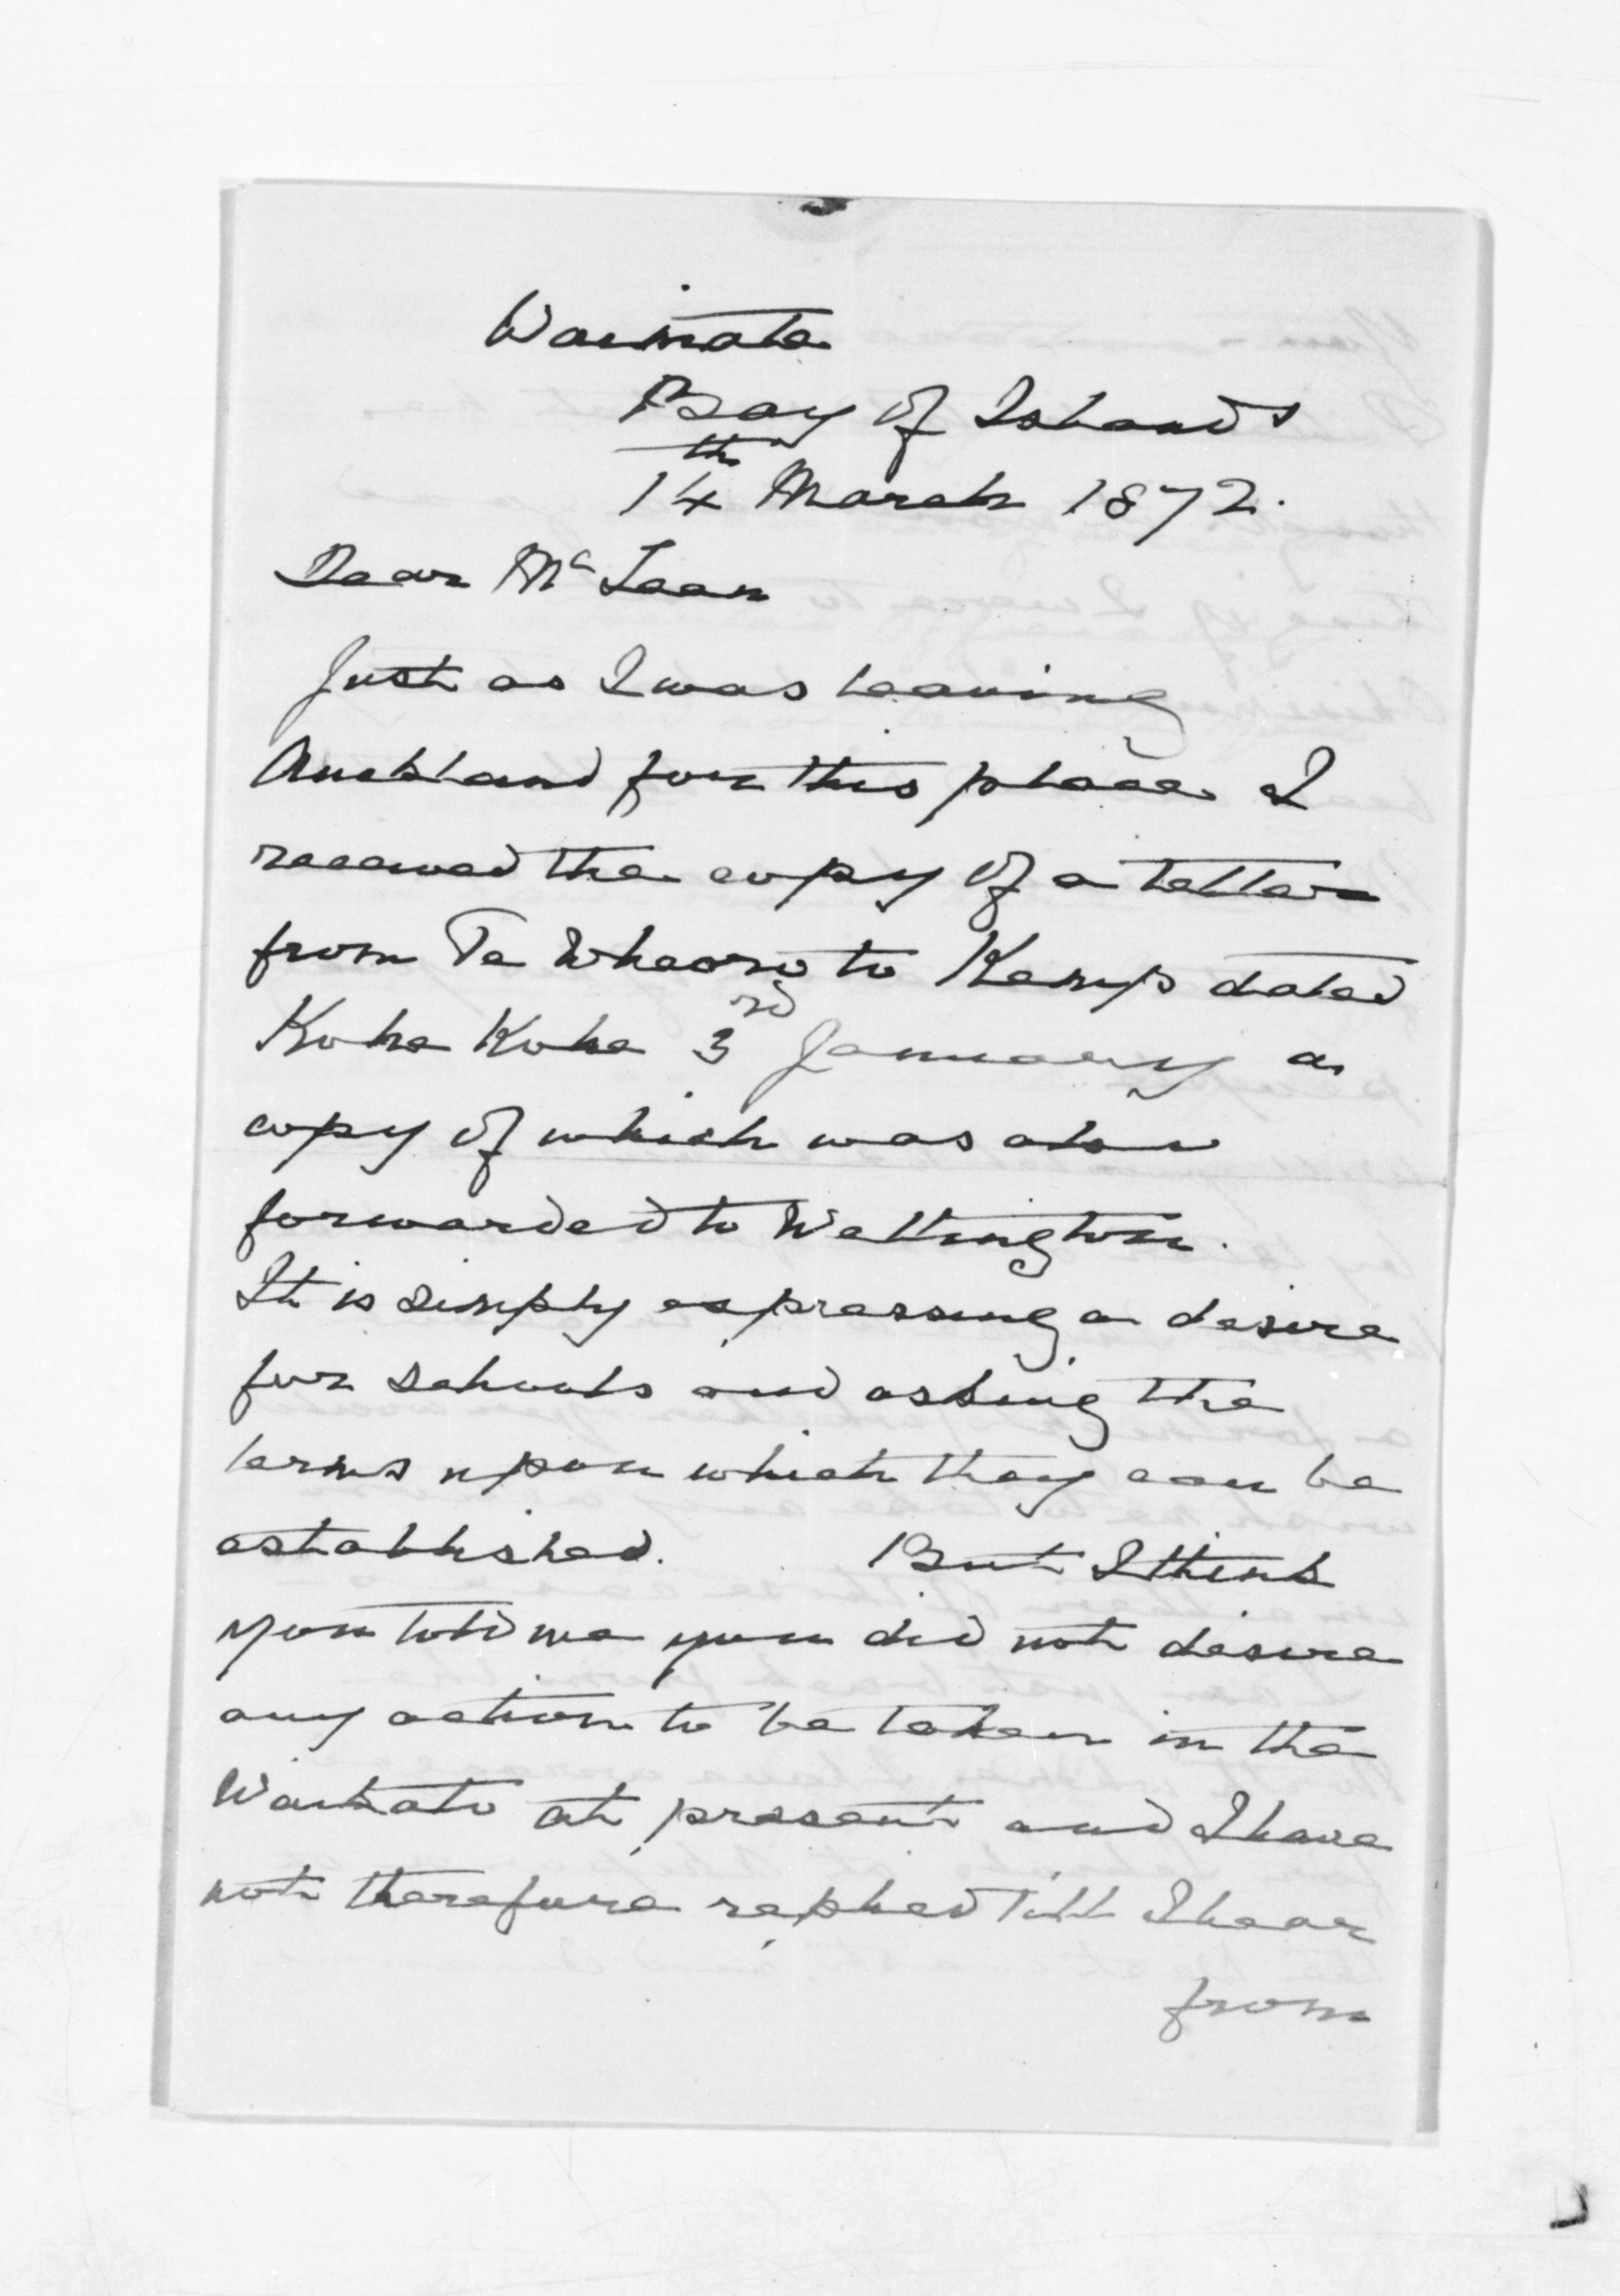 Waimate
Bay of Islands
14th March 1872.
Dear McLean
Just as I was leaving
Auckland for this place I
received the copy of a letter
from Te Wheoro to Kemp dated
Kohe Kohe 3rd January a
copy of which was also
forwarded to Wellington.
It is simply expressing a desire
for schools and asking the
terms upon which they can be
established. But I think
you told me you did not desire
any action to be taken in the
Waikato at present and I have
not therefore replied till I hear
from